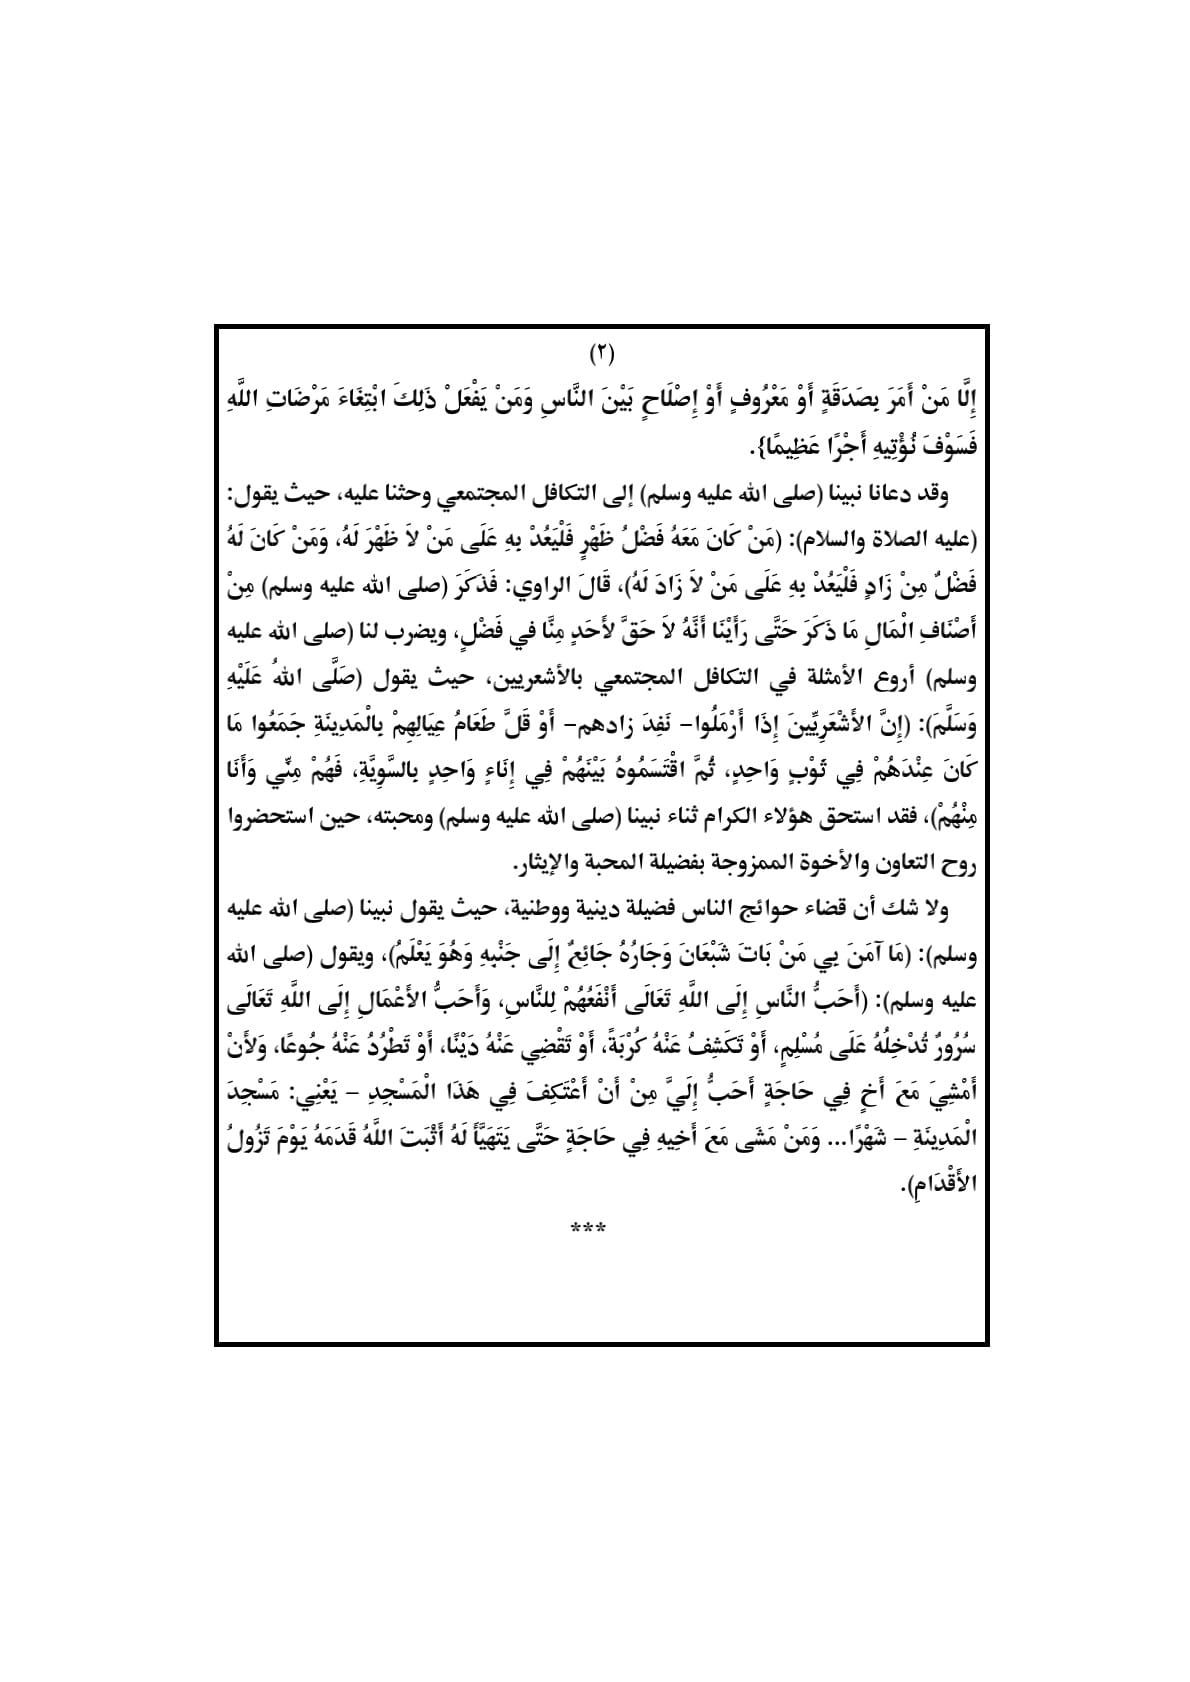 (٢)
إِلَّا مَنْ أَمَرَ بِصَدَقَةٍ أَوْ مَعْرُوفٍ أَوْ إِصْلَاحٍ بَيْنَ النَّاسِ وَمَنْ يَفْعَلْ ذَلِكَ ابْتِغَاءَ مَرْضَاتِ اللَّهِ
فَسَوْفَ نُؤْتِيهِ أَجْرًا عَظِيمًا}.
وقد دعانا نبينا (صلى الله عليه وسلم) إلى التكافل المجتمعي وحثنا عليه، حيث يقول:
(عليه الصلاة والسلام): (مَنْ كَانَ مَعَهُ فَضْلُ ظَهْرٍ فَلْيَعُدْ بِهِ عَلَى مَنْ لاَ ظَهْرَ لَهُ، وَمَنْ كَانَ لَهُ
فَضْلٌ مِنْ زَادٍ فَلْيَعُدْ بِهِ عَلَى مَنْ لاَ زَادَ لَهُ)، قَالَ الراوي: فَذَكَرَ (صلى الله عليه وسلم) مِنْ
أَصْنَافِ الْمَالِ مَا ذَكَرَ حَتَّى رَأَيْنَا أَنَّهُ لاَ حَقَّ لأَحَدٍ مِنَّا في فَضْلٍ، ويضرب لنا (صلى الله عليه
وسلم) أروع الأمثلة في التكافل المجتمعي بالأشعريين، حيث يقول (صَلَّى اللهُ عَلَيْهِ
وَسَلَّمَ): (إِنَّ الأَشْعَرِيِّينَ إِذَا أَرْمَلُوا– نَفِدَ زادهم– أَوْ قَلَّ طَعَامُ عِيَالِهِمْ بِالْمَدِينَةِ جَمَعُوا مَا
كَانَ عِنْدَهُمْ فِي ثَوْبٍ وَاحِدٍ، ثُمَّ اقْتَسَمُوهُ بَيْنَهُمْ فِي إِنَاءٍ وَاحِدٍ بِالسَّوِيَّةِ، فَهُمْ مِنِّي وَأَنَا
مِنْهُمْ)، فقد استحق هؤلاء الكرام ثناء نبينا (صلى الله عليه وسلم) ومحبته، حين استحضروا
روح التعاون والأخوة الممزوجة بفضيلة المحبة والإيثار.
ولا شك أن قضاء حوائج الناس فضيلة دينية ووطنية، حيث يقول نبينا (صلى الله عليه
وسلم): (مَا آمَنَ بِي مَنْ بَاتَ شَبْعَانَ وَجَارُهُ جَائِعٌ إِلَى جَنْبِهِ وَهُوَ يَعْلَمُ)، ويقول (صلى الله
عليه وسلم): (أَحَبُّ النَّاسِ إِلَى اللَّهِ تَعَالَى أَنْفَعُهُمْ لِلنَّاسِ، وَأَحَبُّ الأَعْمَالِ إِلَى اللَّهِ تَعَالَى
سُرُورٌ تُدْخِلُهُ عَلَى مُسْلِمٍ، أَوْ تَكَشِفُ عَنْهُ كُرْبَةً، أَوْ تَقْضِي عَنْهُ دَيْنًا، أَوْ تَطْرُدُ عَنْهُ جُوعًا، وَلأَنْ
أَمْشِيَ مَعَ أَخٍ فِي حَاجَةٍ أَحَبُّ إِلَيَّ مِنْ أَنْ أَعْتَكِفَ فِي هَذَا الْمَسْجِدِ – يَعْنِي: مَسْجِدَ
الْمَدِينَةِ – شَهْرًا... وَمَنْ مَشَى مَعَ أَخِيهِ فِي حَاجَةٍ حَتَّى يَتَهَيَّأَ لَهُ أَثْبَتَ اللَّهُ قَدَمَهُ يَوْمَ تَزُولُ
الأَقْدَامِ).
***